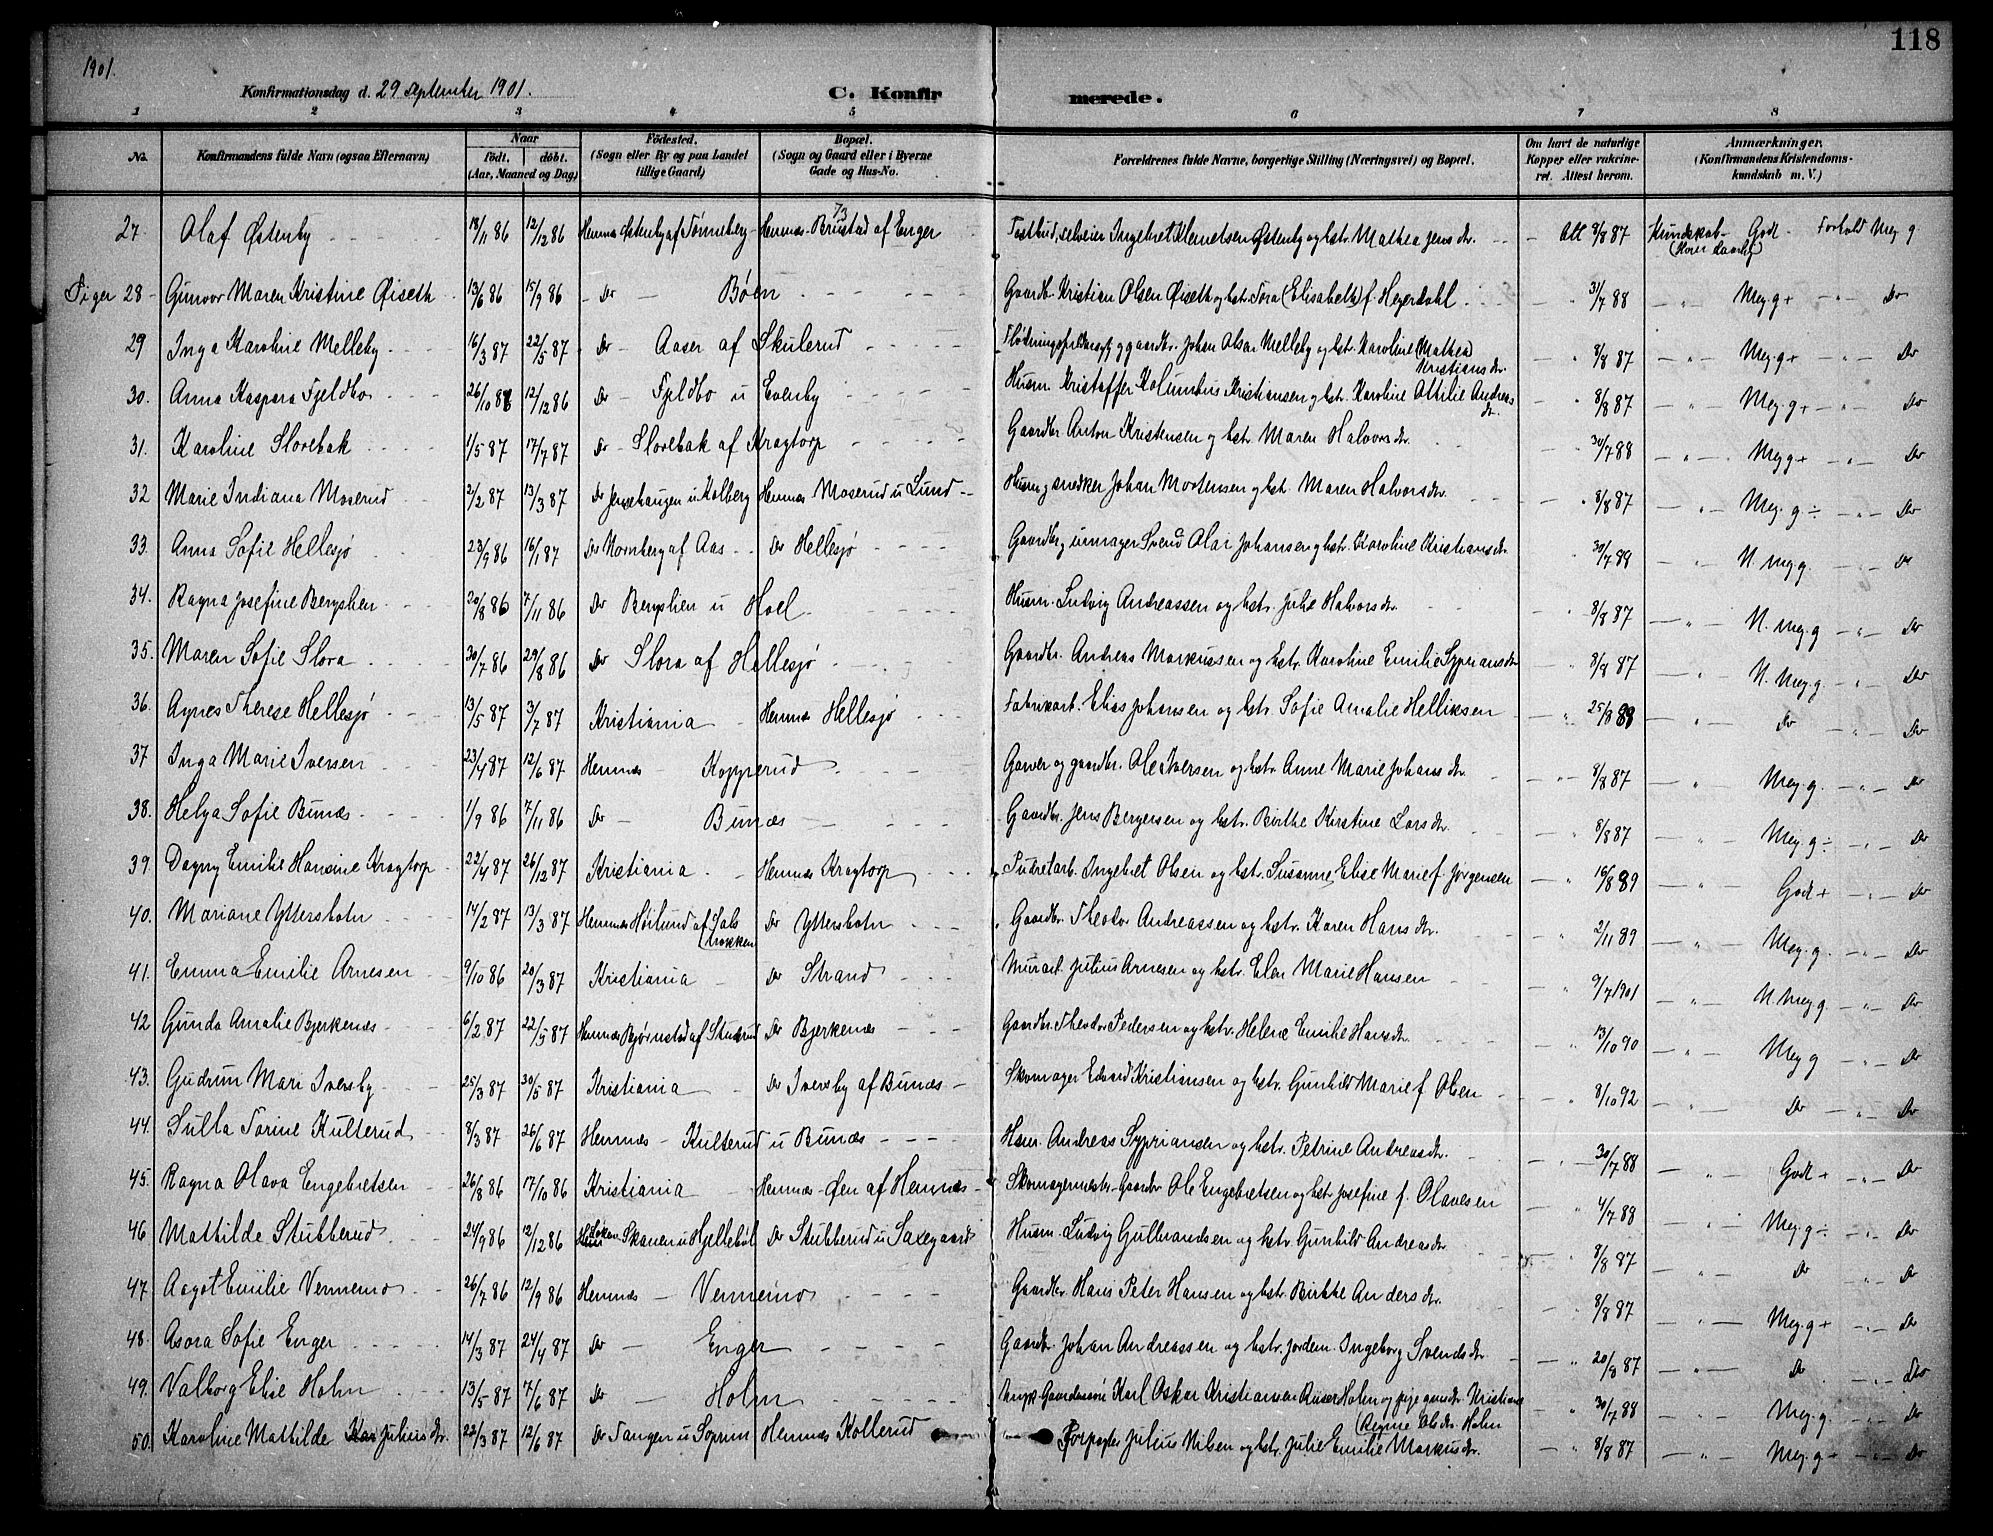 118
1901.
Konfirmationsdag d. 29 September 1901.
C. Konfirmerede.
1 2 3 4 5 6 7 8
No. Konfirmandens fulde Navn (ogsaa Efternavn) Naar født. døbt. (Aar, Maaned og Dag) Fødested. (Sogn eller By og paa Landet tillige Gaard) Bopæl. (Sogn og Gaard eller i Byerne Gade og Hus-No. Forældrenes fulde Navne, borgerlige Stilling (Næringsvei) og Bopæl. Om havt de naturlige Kopper eller vakcineret. Attest herom. Anmærkninger. (Konfirmandens Kristendomskundskab m. V.)
27. Olaf Østenby 18/11 86 12/12 86 Hemnæs Østenby af Tønneberg Hemnæs Brustad af Enger Ingebret Klemetsen Østenby og hstr. Mathea Jens dr. Att 8/8 87 Kundskab Godt Forhold Meg g.
Piger 28 Gunvor Maren Kristine Øiseth 13/6 86 15/9 86 Do Bøen Gaardbr. Kristian Olsen Øiseth og hstr. Tora (Elisabeth) f. Heyerdahl 31/7 88 Meg. g + Do
29 Inga Karoline Melleby 16/3 87 22/5 87 Do Aaser af Skulerud og gaardbr. Johan Olsen Melleby og hstr. Karoline (Mathea) Kristians dr. 8/8 87 Meg. g + Do
30. Anna Kaspara Fjeldbo 26/10 86 12/12 86 Do Fjeldbo u Evenby Husm. Kristoffer Kolumbus Kristiansen og hstr. Karoline Attilie Andreas dr. 8/8 87 Meg. g + Do
31. Karoline Slorebak 1/5 87 17/7 87 Do Slorebak af Kragtorp Gaardbr. Anton Kristensen og hstr. Maren Halvors dr. 30/7 88 Meg g + Do
32 Marie Indiana Moserud 2/2 87 13/3 87 Do Jensehaugen u Kolberg Hemnæs Moserud u Lund Husm. og snedker Johan Mortensen og hstr. Maren Halvors dr. 8/8 87 Meg. g ÷ Do
33. Anna Sofie Hellesjø 23/9 86 16/1 87 Do af Aas Do Hellesjø Gaardbr. og Svend Olai Johansen og hstr. Karoline Kristians dr. 30/7 88 N. meg g. Do
34. Ragna Josefine Bergslien 20/8 86 7/11 86 Do Bergslien u Hoel Husm. Ludvig Andreassen og hstr. Julie Halvors dr. 8/8 87 N. meg. g Do
35. Maren Sofie Slora 30/7 86 29/8 86 Do Slora af Hellesjø Gaardbr. Andreas Markussen og hstr. Karoline Emilie Syprians dr 8/8 87 N. Meg. g. Do
36. Agnes Therese Hellesjø 13/5 87 3/7 87 Kristiania Hemnæs Hellesjø Fabrikarb. Elias Johansen og hstr. Sofie Amalie Helliksen 25/8 88 Do Do
37 Inga Marie Iversen 23/4 87 12/6 87 Hemnæs Kopperud Garver og gaardbr. Ole Iversen og hstr. Anne Marie Johans dr. 8/8 87 Meg. g. Do
38. Helga Sofie Bunæs 1/9 86 7/11 86 Do Bunæs Gaardbr. Jens Bergersen og hstr. Birthe Kirstine Lars dr. 8/8 87 Meg. g ÷ Do
39. Dagny Emilie Hansine Kragtorp 22/4 87 26/12 87 Kristiania Hemnæs Kragtorp Ingebret Olsen og hstr. Susanne Elise Marie f. Jørgensen 16/8 89 Godt + Do
40. Mariane Ytterbotn 14/2 87 13/3 87 Hemnæs Høilund af Do Ytterbotn Gaardbr. Theodor Andreassen og hstr. Karen Hans dr. 2/11 89 Meg. g. Do
41. Emma Emilie Arnesen 9/10 86 20/3 87 Kristiania Do Strand Murarb. Julius Arnesen og hstr. Elen Marie Hansen 9/7 1901 N. Meg g. Do
42 Gunda Amalie Bjerkenæs 6/2 87 22/5 87 Hemnæs Bjørnstad af Skulerud Do Bjerkenæs Gaardbr. Theodor Pedersen og hstr. Helene Emilie Hans dr. 13/10 90 Meg g Do
43. Gudrun Mari Iversby 25/3 87 30/5 87 Kristiania Do Iversby af Bunæs Skomager Edvard Kristiansen og hstr. Gunhild Marie f. Olsen 8/10 92 Do Do
44. Sulla Torine Kulterud 8/3 87 26/6 87 Hemnæs Kulterud u Bunæs Husm. Andreas Sypriansen og hstr. Petrine Andreas dr. 30/7 88 Godt + Do
45. Ragna Olava Engebretsen 26/8 86 17/10 86 Kristiania Hemnæs Øen af Hemnæs Skomagermester Gaardbr Ole Engebretsen og hstr. Josefine f. Olavesen 4/7 88 Meg g ÷ Do
46 Mathilde Stubberud 24/9 86 12/12 86 Skauen u Hjellebøl Do Stubberud u Saxegaard Husm. Ludvig Gulbrandsen og hstr. Gunhild Andreas dr 8/8 87 Do Do
47. Aagot Emilie Vennemo 26/7 86 12/9 86 Hemnæs Vennemo Gaardbr. Hans Peter Hansen og hstr. Birthe Anders dr. 8/8 87 Meg. g + Do
48. Asora Sofie Enger 14/3 87 24/4 87 Do Enger Gaardbr. Johan Andreassen og hstr. Jordem. Ingeborg Svends dr. 20/8 87 Do Do
49. Valborg Elise Holm 13/5 87 7/6 87 Do Holm Ungk. Karl Oskar Kristiansen Holm og pige Kristiane (Regine Ols dr. Holm 30/7 88 Meg. g. Do
50. Karoline Mathilde Julius dr. 22/3 87 12/6 87 Do Tangen u Soprim Hemnæs Kollerud Forpagter Julius Nilsen og hstr. Julie Emilie Markus dr. 8/8 87 Meg. g + Do